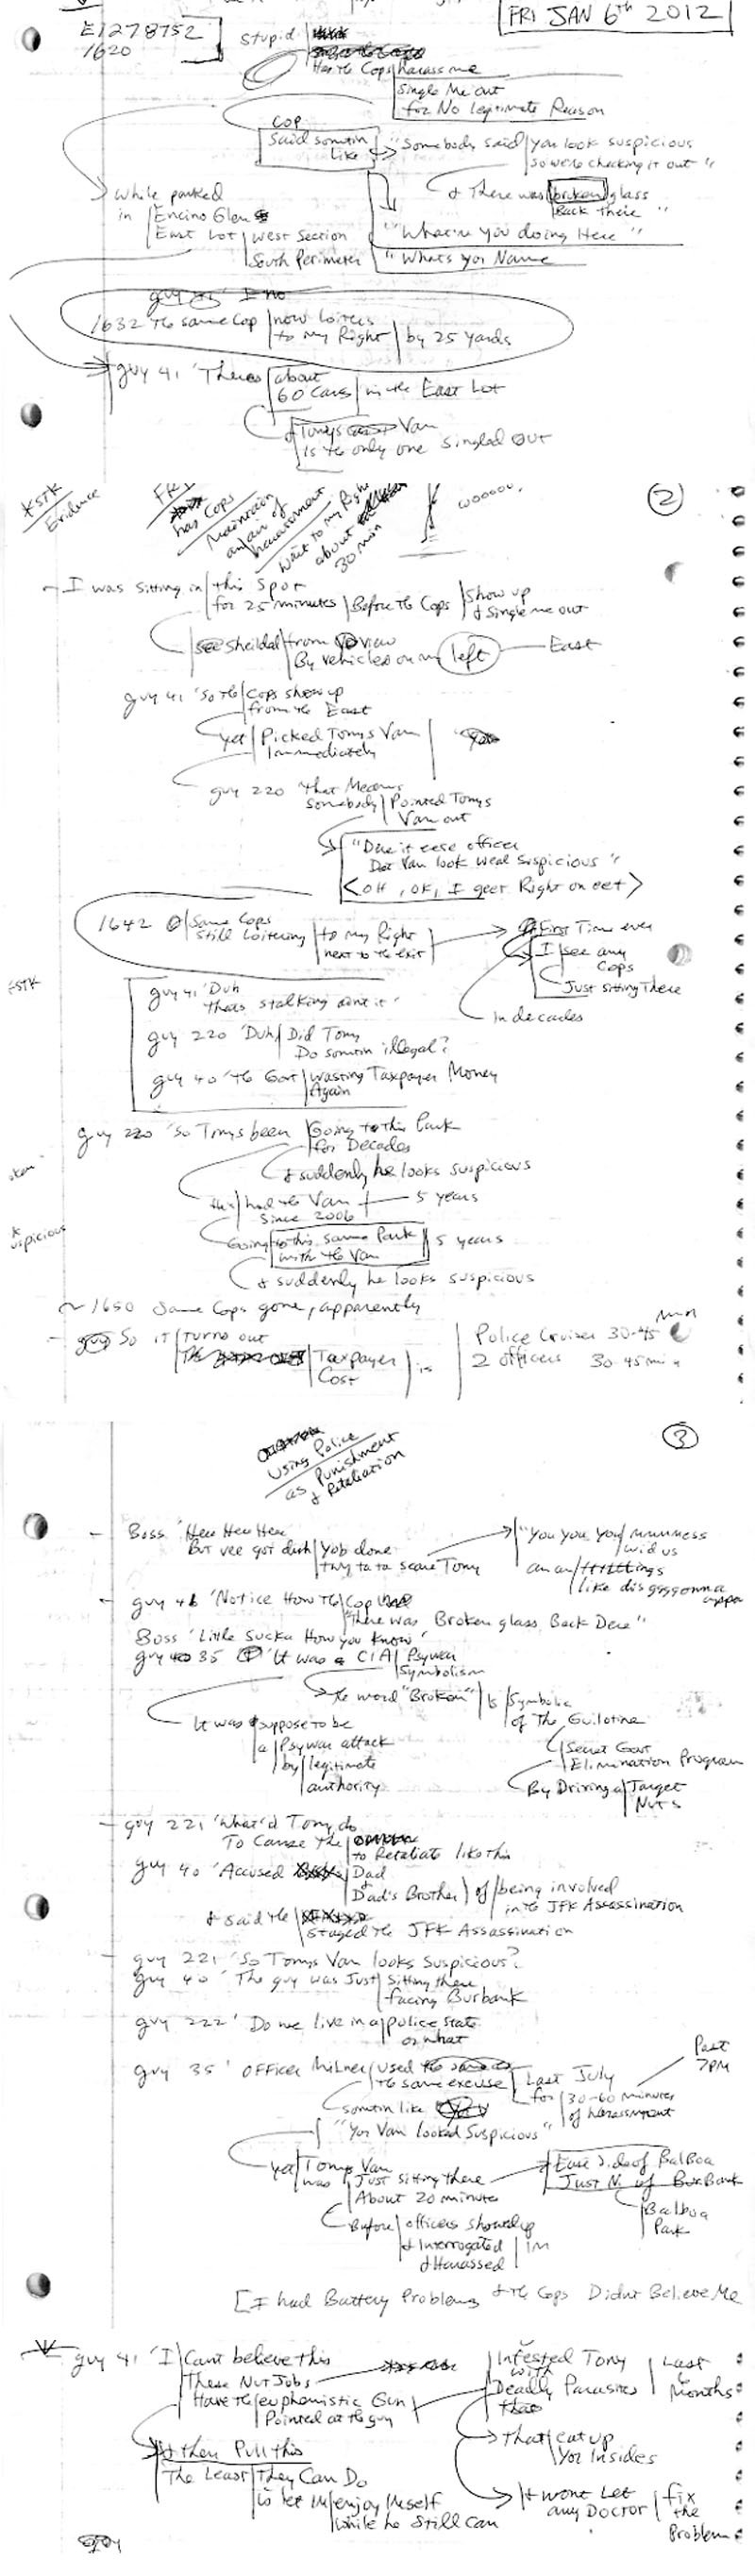 FRI JAN 6th 2012
E1278752
1620
Stupid
Has the Cops harass me
Single Me out
for No legitimate Reason
COP
Said somtin like
"Somebody said you look suspicious
so we're checking it out"
& There was broken glass
Back There"
"What're you doing Here"
"Whats Yor Name
While parked
in Encino Glen
East Lot West Section
South Perimeter
1632 the same Cop now Loiters
to my Right by 25 yards
guy 41 'Theres about
60 Cars in the East Lot
& Tonys Van
is the only one singled out
*STK
Evidence
FRI
has Cops
Maintain
an air of
harassment
Wait to my Right
about
30 min
2
I was sitting in this spot
for 25 minutes Before the Cops Show up
& Single me out
sheilded from view
By vehicles on my left East
guy 41 'So the Cops show up
from the East
yet Picked Tonys Van
Immediately
guy 220 'That Means
somebody Pointed Tonys
Van out
"Dere it eese officer
Dat Van look weal suspicious"
<OH, OK, I geet Right on eet>
1642 Same Cops
still Loitering to my Right
next to the exit
First Time ever
I see any
Cops
Just sitting There
In decades
*STK
guy 41 'Duh
thers stalking aint it'
guy 220 'Duh Did Tony
Do somtin illegal?
guy 40 'the Govt wasting Taxpayer Money
Again
guy 220 'So Tonys been Going to this Park
for Decades
& suddenly he looks suspicious
had the Van 5 years
Since 2006
Going to this same Park
with the Van 5 years
& suddenly he looks suspicious
~1650 Same Cops gone, apparently
guy So it turns out
Taxpayer
Cost is
Police Cruiser 30-45 min
2 officers 30-45 min
3
Using Police
as Punishment
& Retaliation
Boss 'Hew Hew Hew
But vee got duh Yob done
twy ta ta scare Tony
"You you you
wid us
like
guy 46 'Notice How the Cop
"There was Broken glass Back Dere"
Boss 'Little Sucka How you know'
guy 35 'It was a CIA Psywar
Symbolism
the word "Broken" is Symbolic
of The Guilotine
Secret Govt
Elimination Program
By Driving a Target
Nuts
It was suppose to be
a Psywar attack
by legitimate
authority
guy 221 'What'd Tony do
To Cause the
to Retaliate like this
guy 40 'Accused Dad
& Dad's Brother of being involved
in the JFK Assassination
& said the
staged the JFK Assassination
guy 221 'So Tonys Van looks Suspicious?
guy 40 'The guy was Just Sitting there
facing Burbank
guy 222 'Do we live in a police state
or what
guy 35 'Officer Milner used
the same excuse Last July
for 30-60 minutes
of harassment
Past
7PM
somtin like
"Yor Van Looked Suspicious"
yet Tonys Van
was Just sitting there
About 20 minutes
East Side of Balboa
Just N. of Burbank
Balboa
Park
Before officers showed up
& Interrogated
& Harassed Im
[I had Battery Problems & the Cops Didnt Believe Me
guy 41 'I Cant believe this
These Nut Jobs
Have the euphemistic Gun
Pointed at the guy
Infested Tony
with
Deadly Parasites
Last
6
Months
That eat up
Yor Insides
& wont Let
any Doctor fix
the
Problem
& then Pull this
The Least They Can Do
is let Im enjoy Imself
while he Still Can